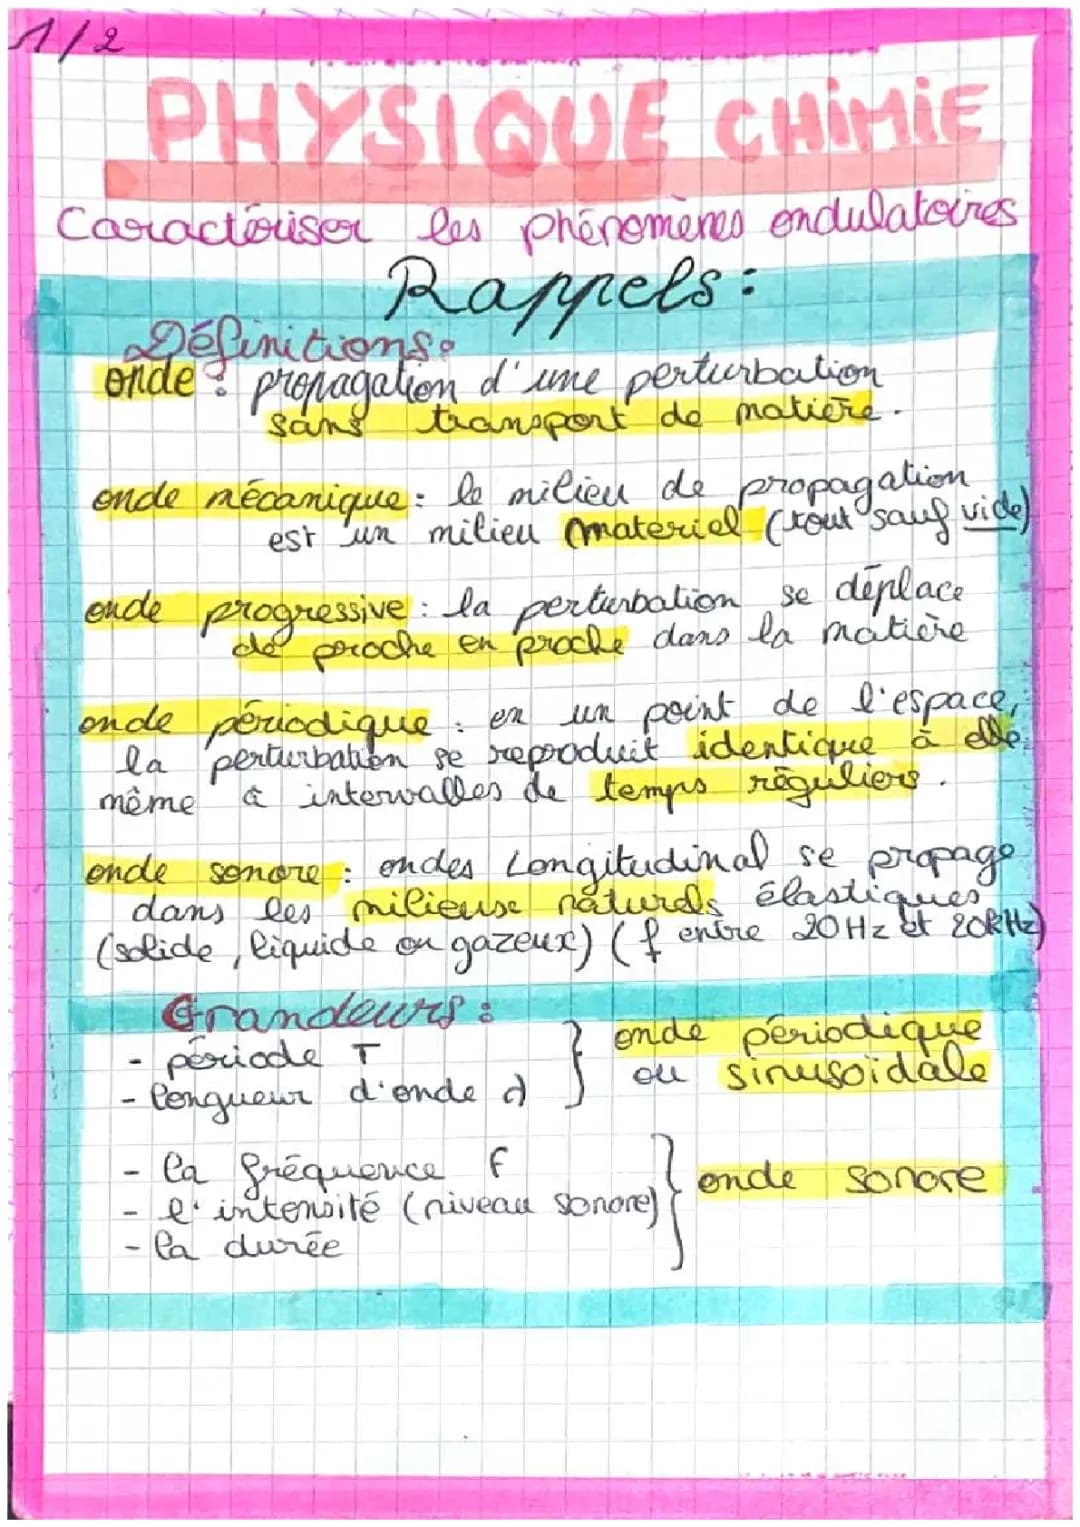 1/2
PHYSIQUE CHIMIE
Caractériser les phénomènes ondulatoires
Rappels :
Définitions :
onde : propagation d'une perturbation
sans transport de matière.
onde mécanique : le milieu de propagation
est un milieu matériel (tout sauf vide)
onde progressive : la perturbation se déplace
de proche en proche dans la matière
onde périodique : en un point de l'espace,
la perturbation se reproduit identique à elle
même à intervalles de temps réguliers.
onde sonore : ondes Longitudinal se propage
dans les milieuse naturels élastiques
(solide, liquide ou gazeux) (f entre 20Hz et 20kHz)
Grandeurs :
- période T
- longueur d'onde λ
} onde périodique
ou sinusoïdale
- la fréquence f
- l'intensité (niveau sonore)
- la durée
} onde sonore